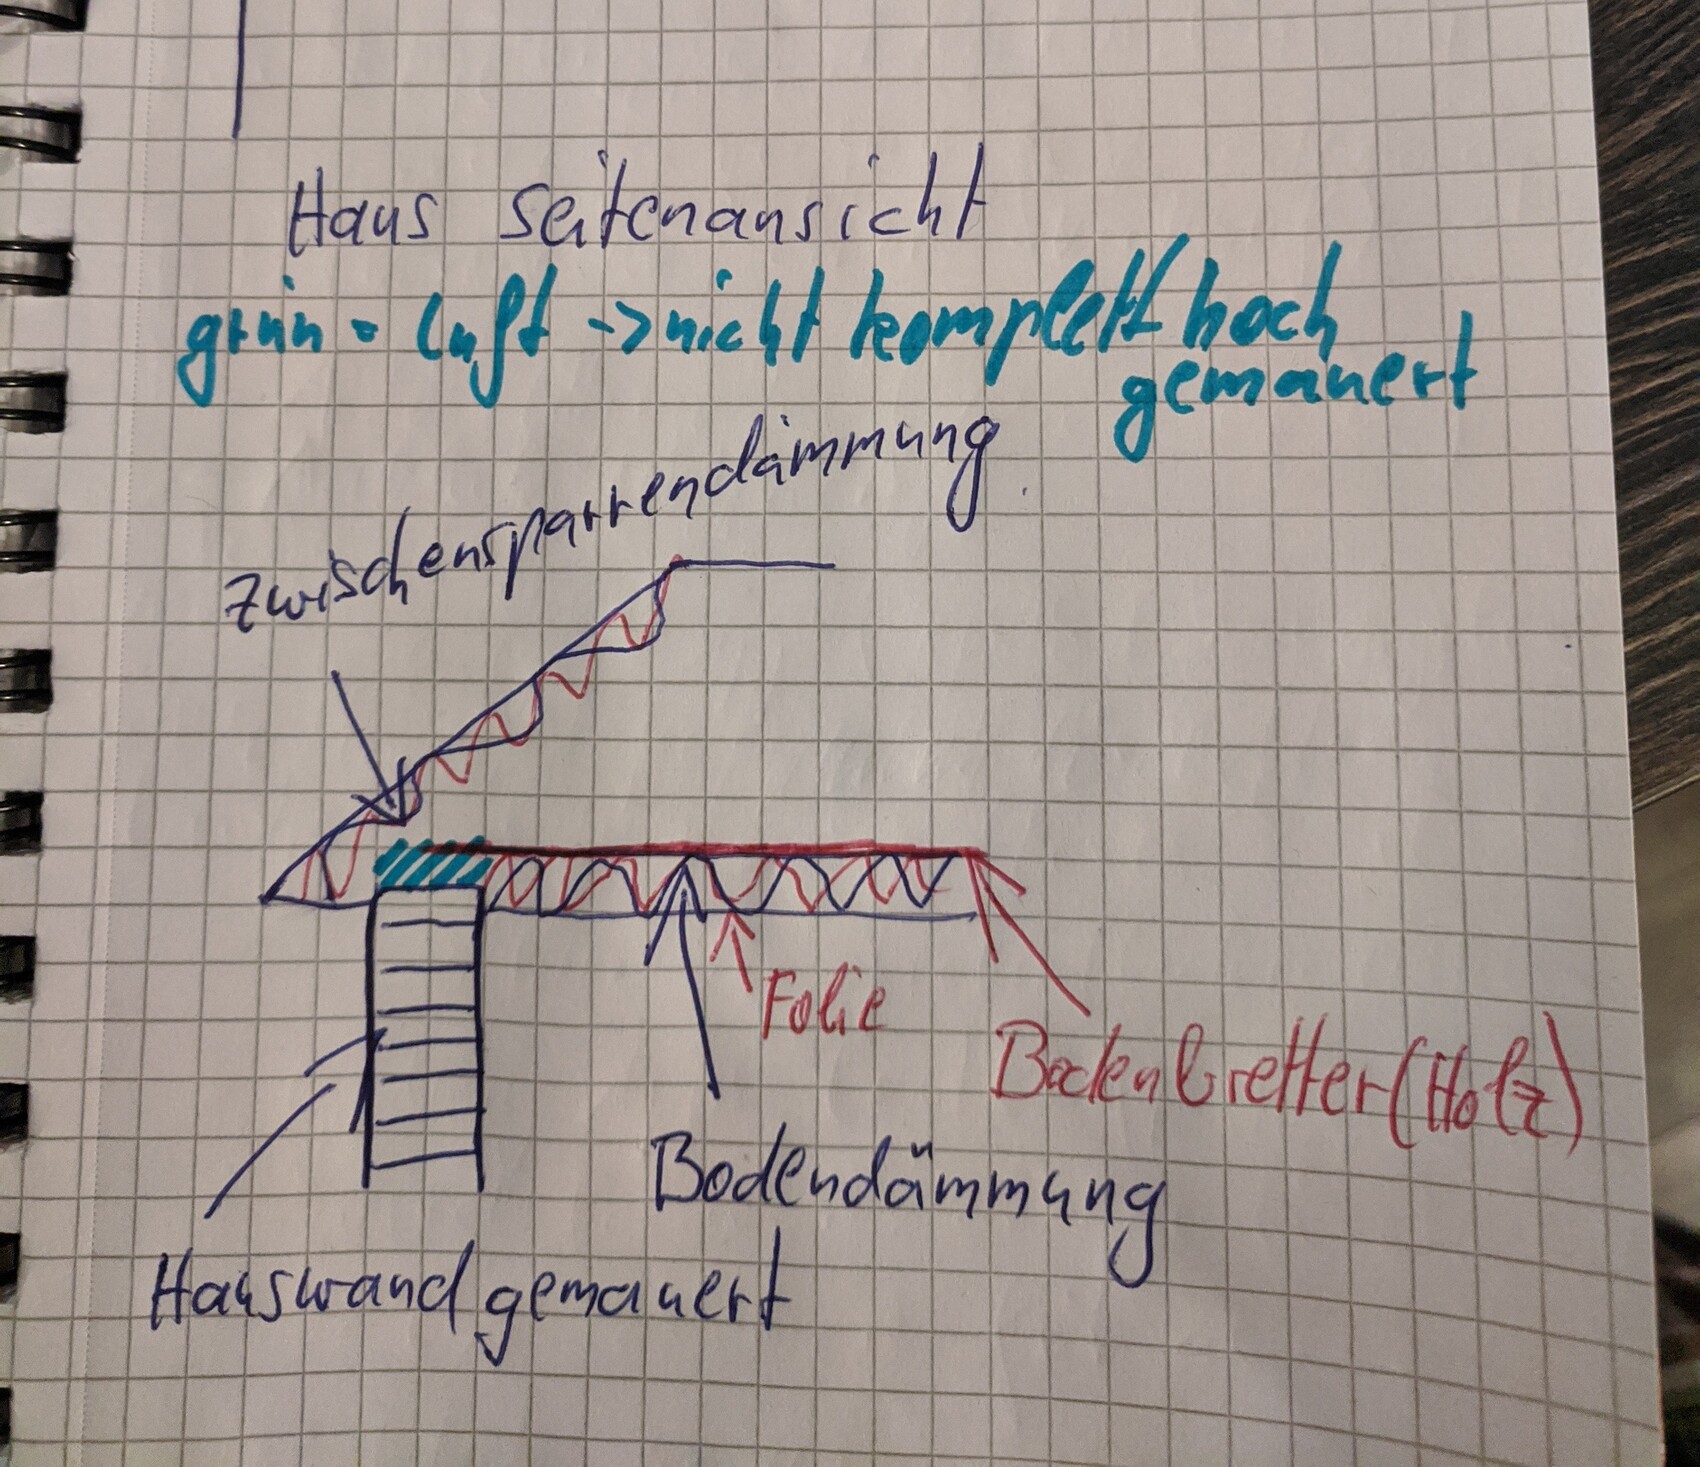 Haus Seitenansicht
grün = Luft -> nicht komplett hoch
gemauert
Zwischensparrendämmung
Folie
Bodenbretter (Holz)
Bodendämmung
Hauswand gemauert